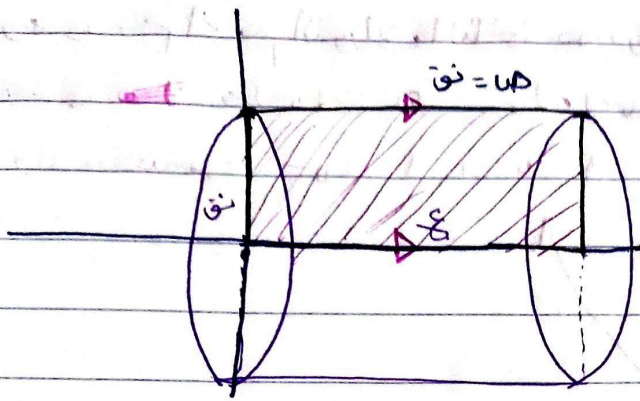 ص = نق
نق
ع